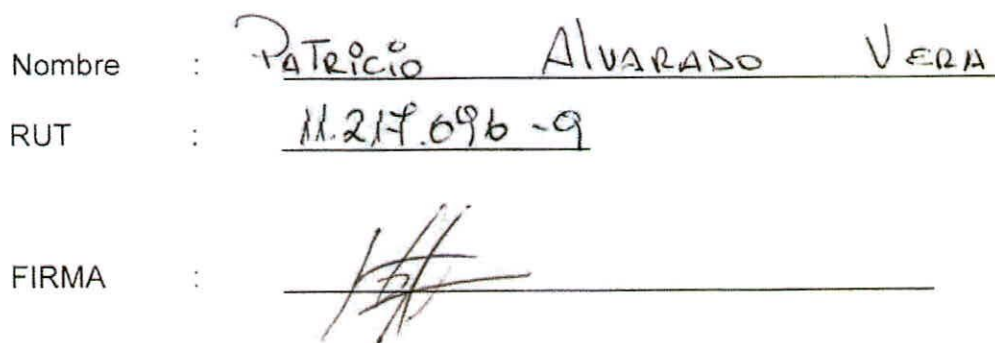 Nombre : Patricio Alvarado Vera
RUT : 11.217.696-9
FIRMA :